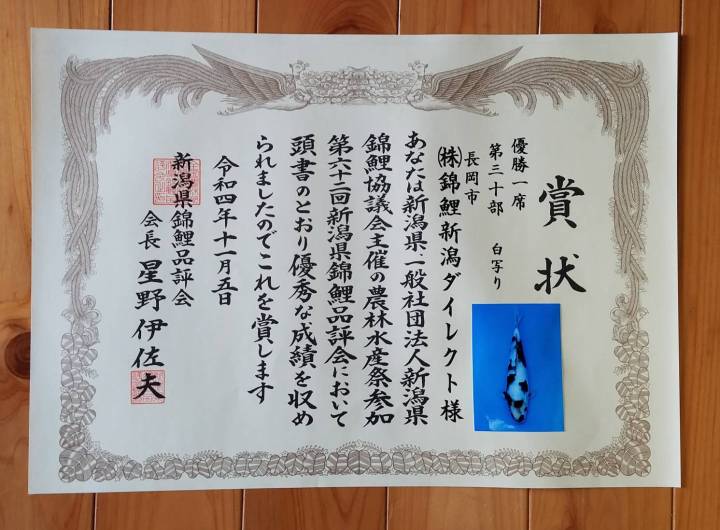 賞状
優勝一席
第三十部 白写り
長岡市
㈱錦鯉新潟ダイレクト様
あなたは新潟県、一般社団法人新潟県
錦鯉協議会主催の農林水産祭参加
第六十二回新潟県錦鯉品評会において
頭書のとおり優秀な成績を収め
られましたのでこれを賞します
令和四年十一月五日
新潟県錦鯉品評会
会長 星野伊佐夫